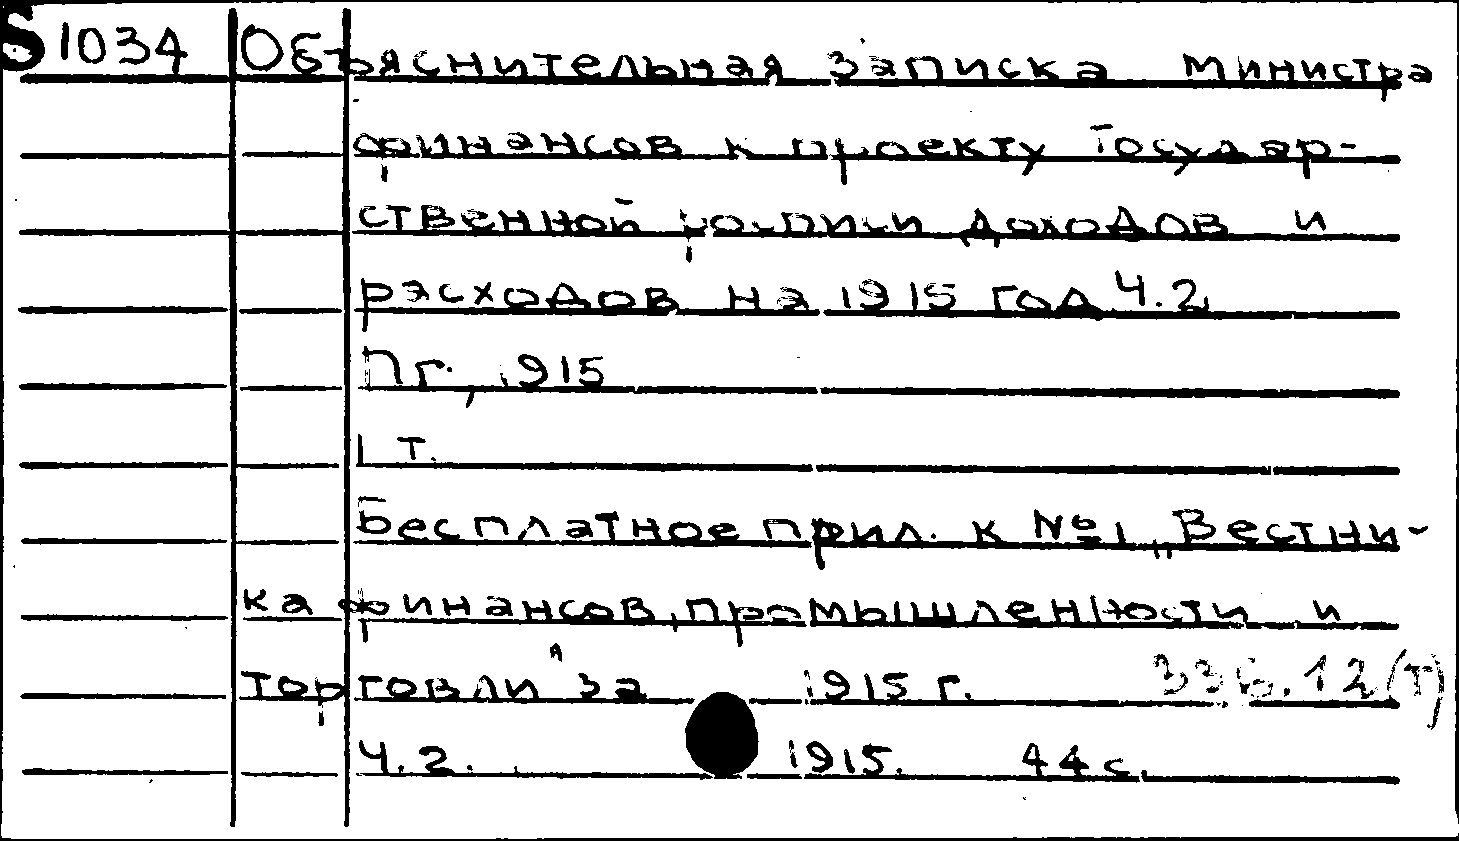 S1034 Объяснительная записка министра
финансов к проекту Государ-
ственной росписи доходов и
расходов на 1915 год Ч.2
Пг., 1915
1 т.
Бесплатное прил. к №1 „Вестни-
ка финансов, промышленности и
торговли" за 1915 г. 336.12(Т)
Ч.2. 1915. 44 с.